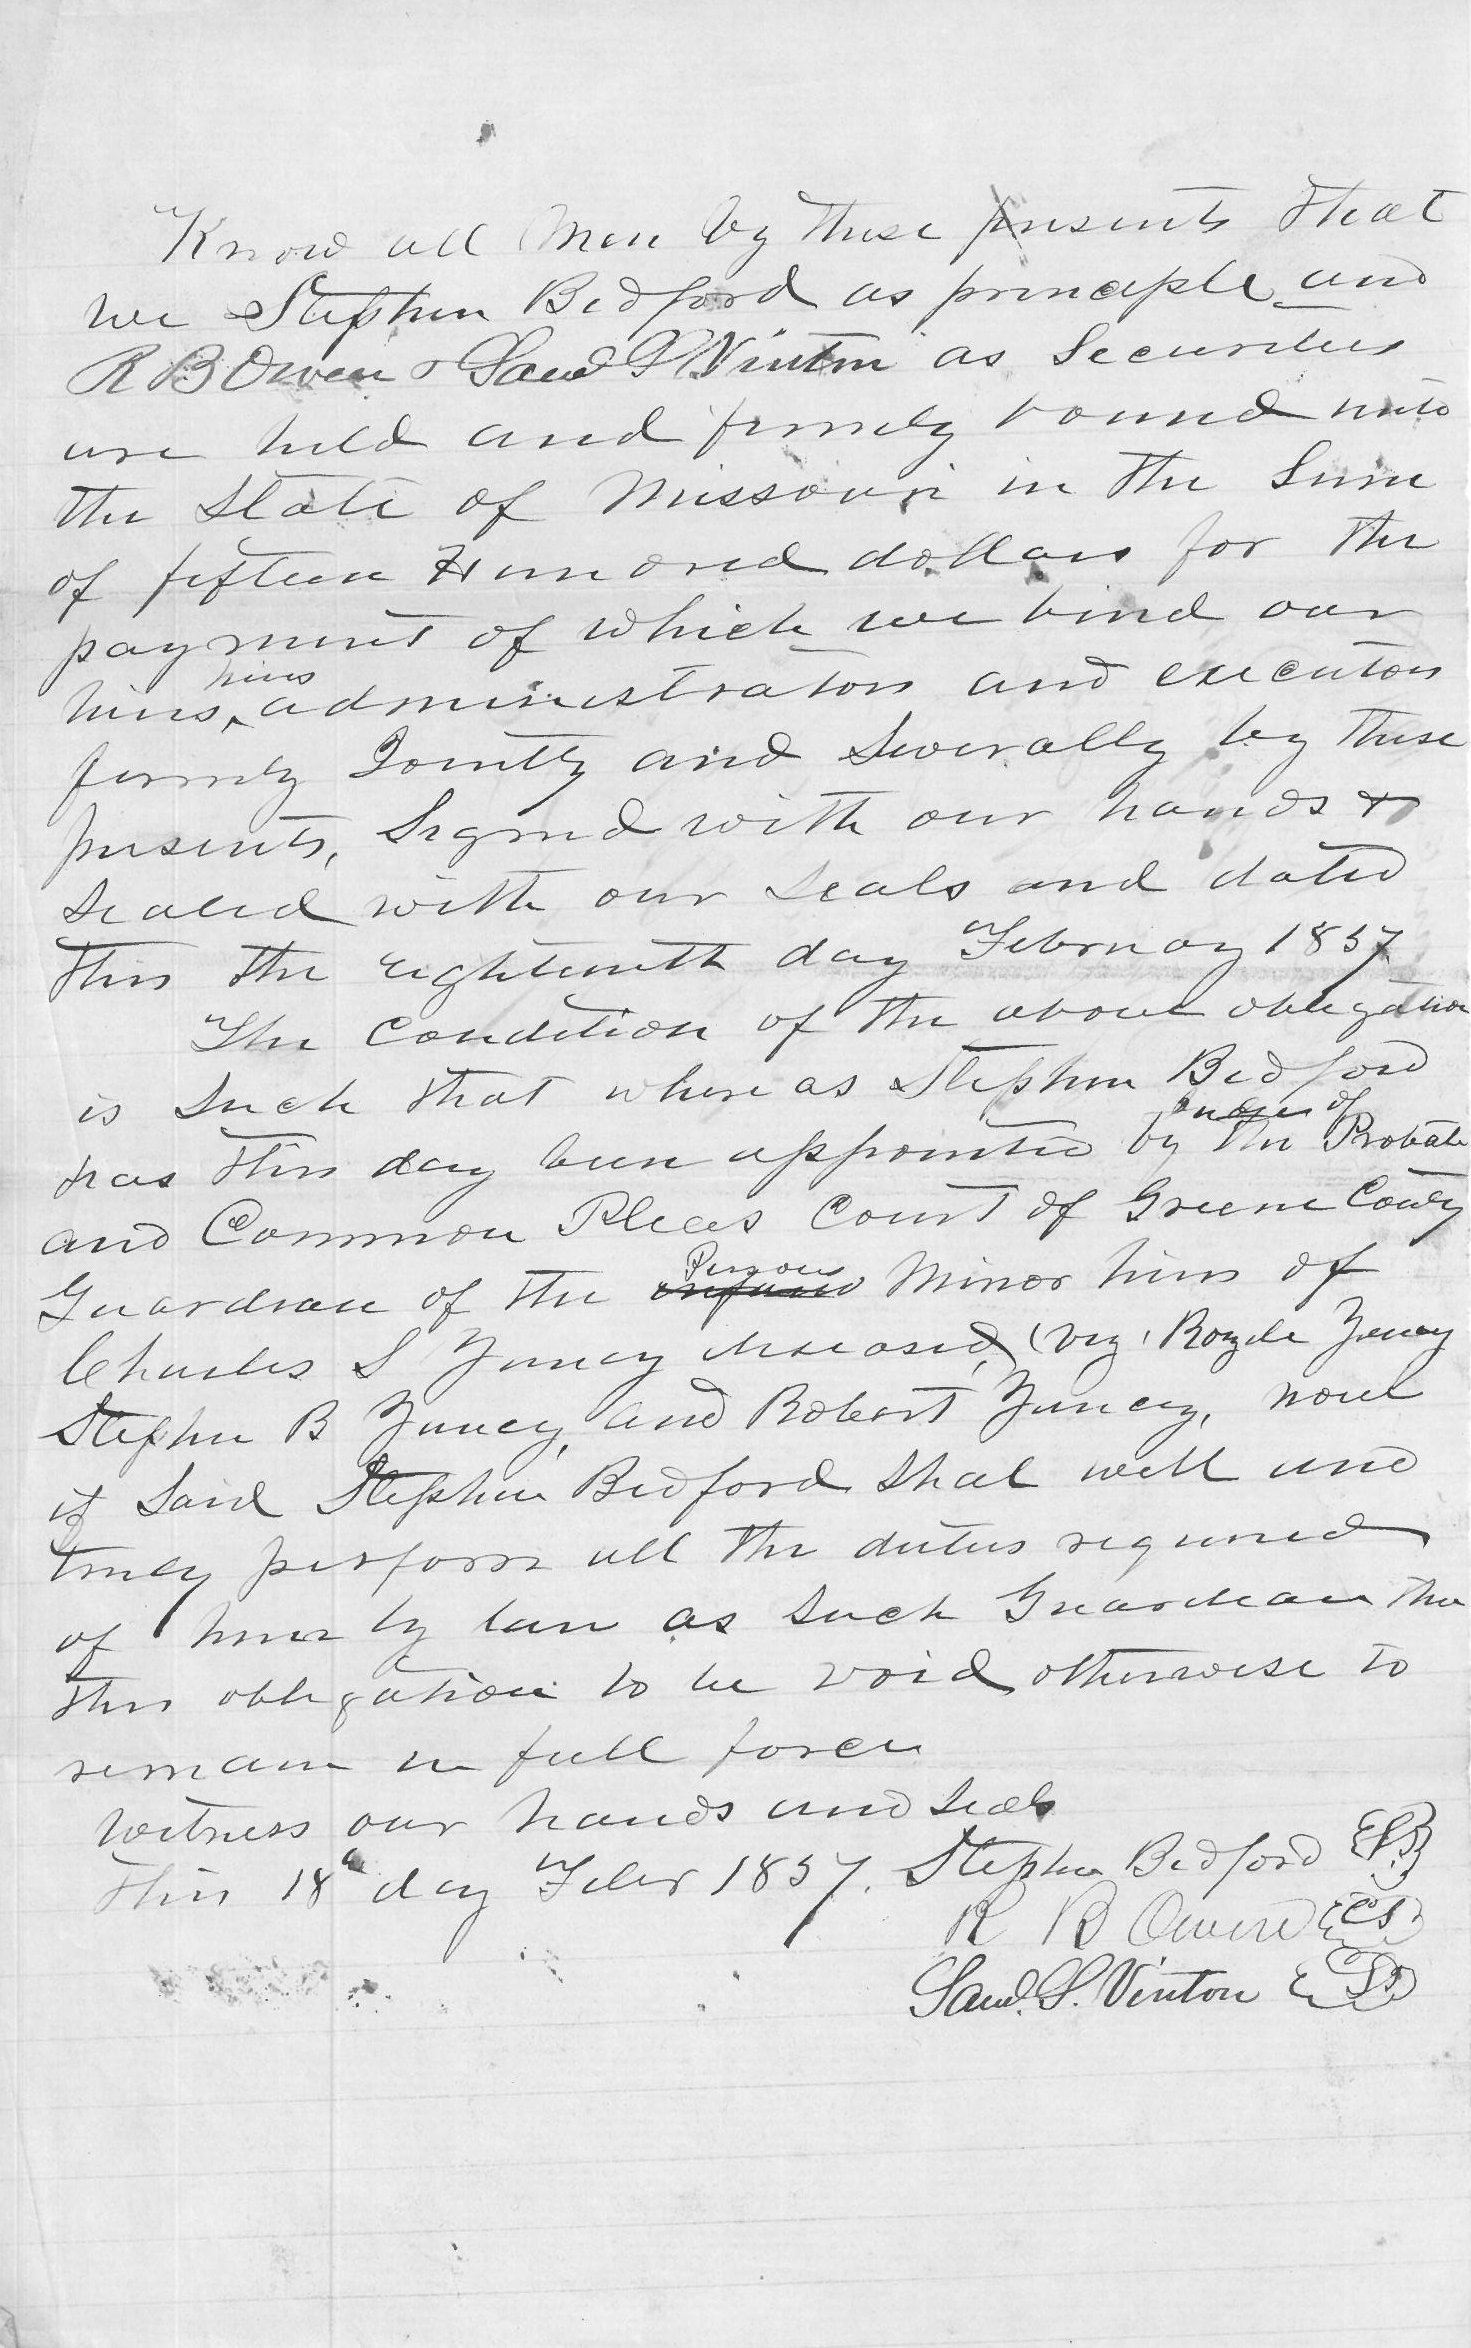 Know all Men by these presents that
we Stephen Bedford as principle and
R B Owen & Saml S Vinton as Securities
are held and firmly bound unto
the State of Missouri in the Sum
of fifteen Hundred dollars for the
payment of which we bind our
heirs
heirs, administrators and executors
firmly Jointly and Severally by these
presents, Signed with our hands &
Sealed with our Seals and dated
this the eighteenth day February 1857
The condition of the above obligation
is Such that where as Stephen Bedford
Judge of
has this day been appointed by the Probate
and Common Pleas Court of Greene County
Persons
Guardian of the Minor heirs of
Charles S Yancy deceased, (viz, Yancy
Stephen B Yancy, and Robert Yancy, now
if Said Stephen Bedford Shal well and
truly perform all the duties required
of him by law as Such Guardian then
this obligation to be void otherwise to
remain in full force
Witness our hands and Seals
This 18th day Febr 1857. Stephen Bedford
R B Owen
Saml. S. Vinton